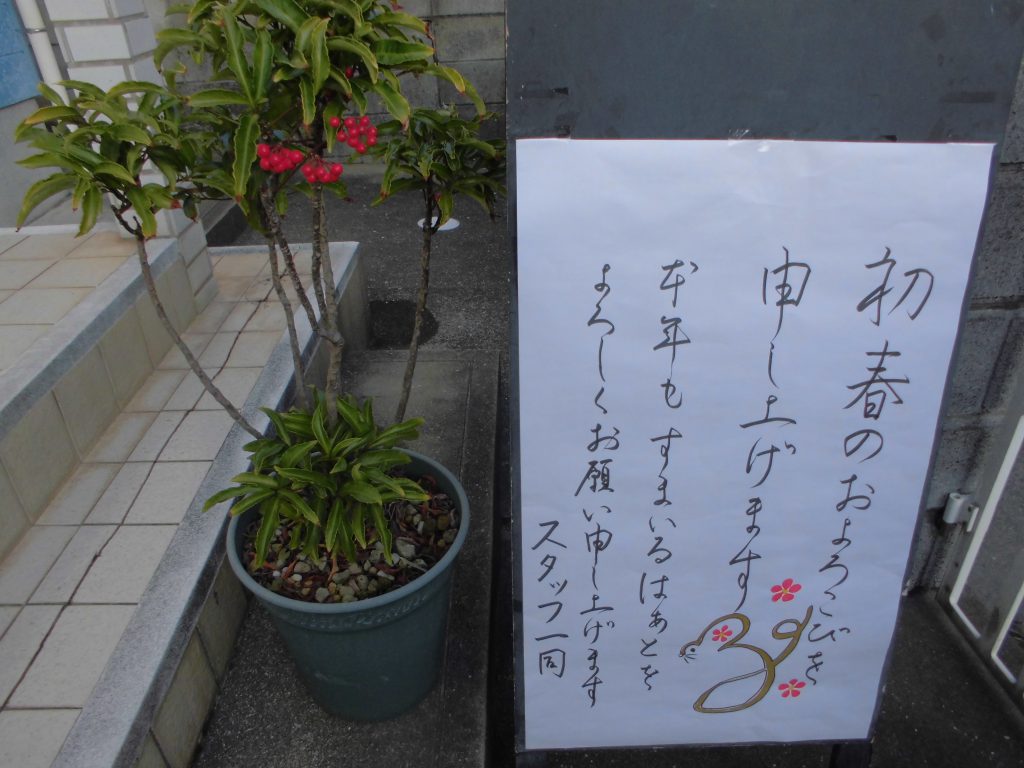 初春のおよろこびを
申し上げます
本年も すまいるはぁとを
よろしくお願い申し上げます
スタッフ一同